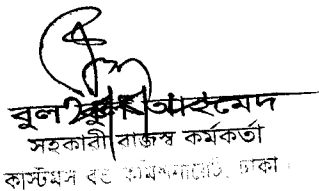 বুল আহমেদ
সহকারী রাজস্ব কর্মকর্তা
কাস্টমস বন্ড কমিশনারেট, ঢাকা।